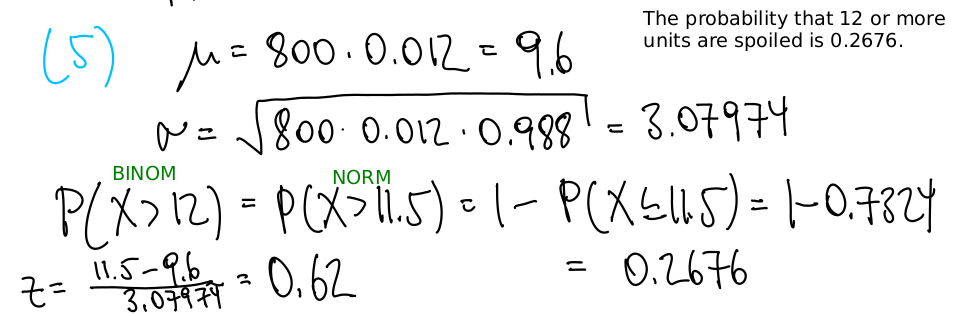 (5) μ = 800 · 0.012 = 9.6
The probability that 12 or more
units are spoiled is 0.2676.
σ = √800 · 0.012 · 0.988 = 3.07974
BINOM NORM
P(X > 12) = P(X > 11.5) = 1 - P(X ≤ 11.5) = 1 - 0.7324
z = (11.5 - 9.6)/3.07974 = 0.62
= 0.2676